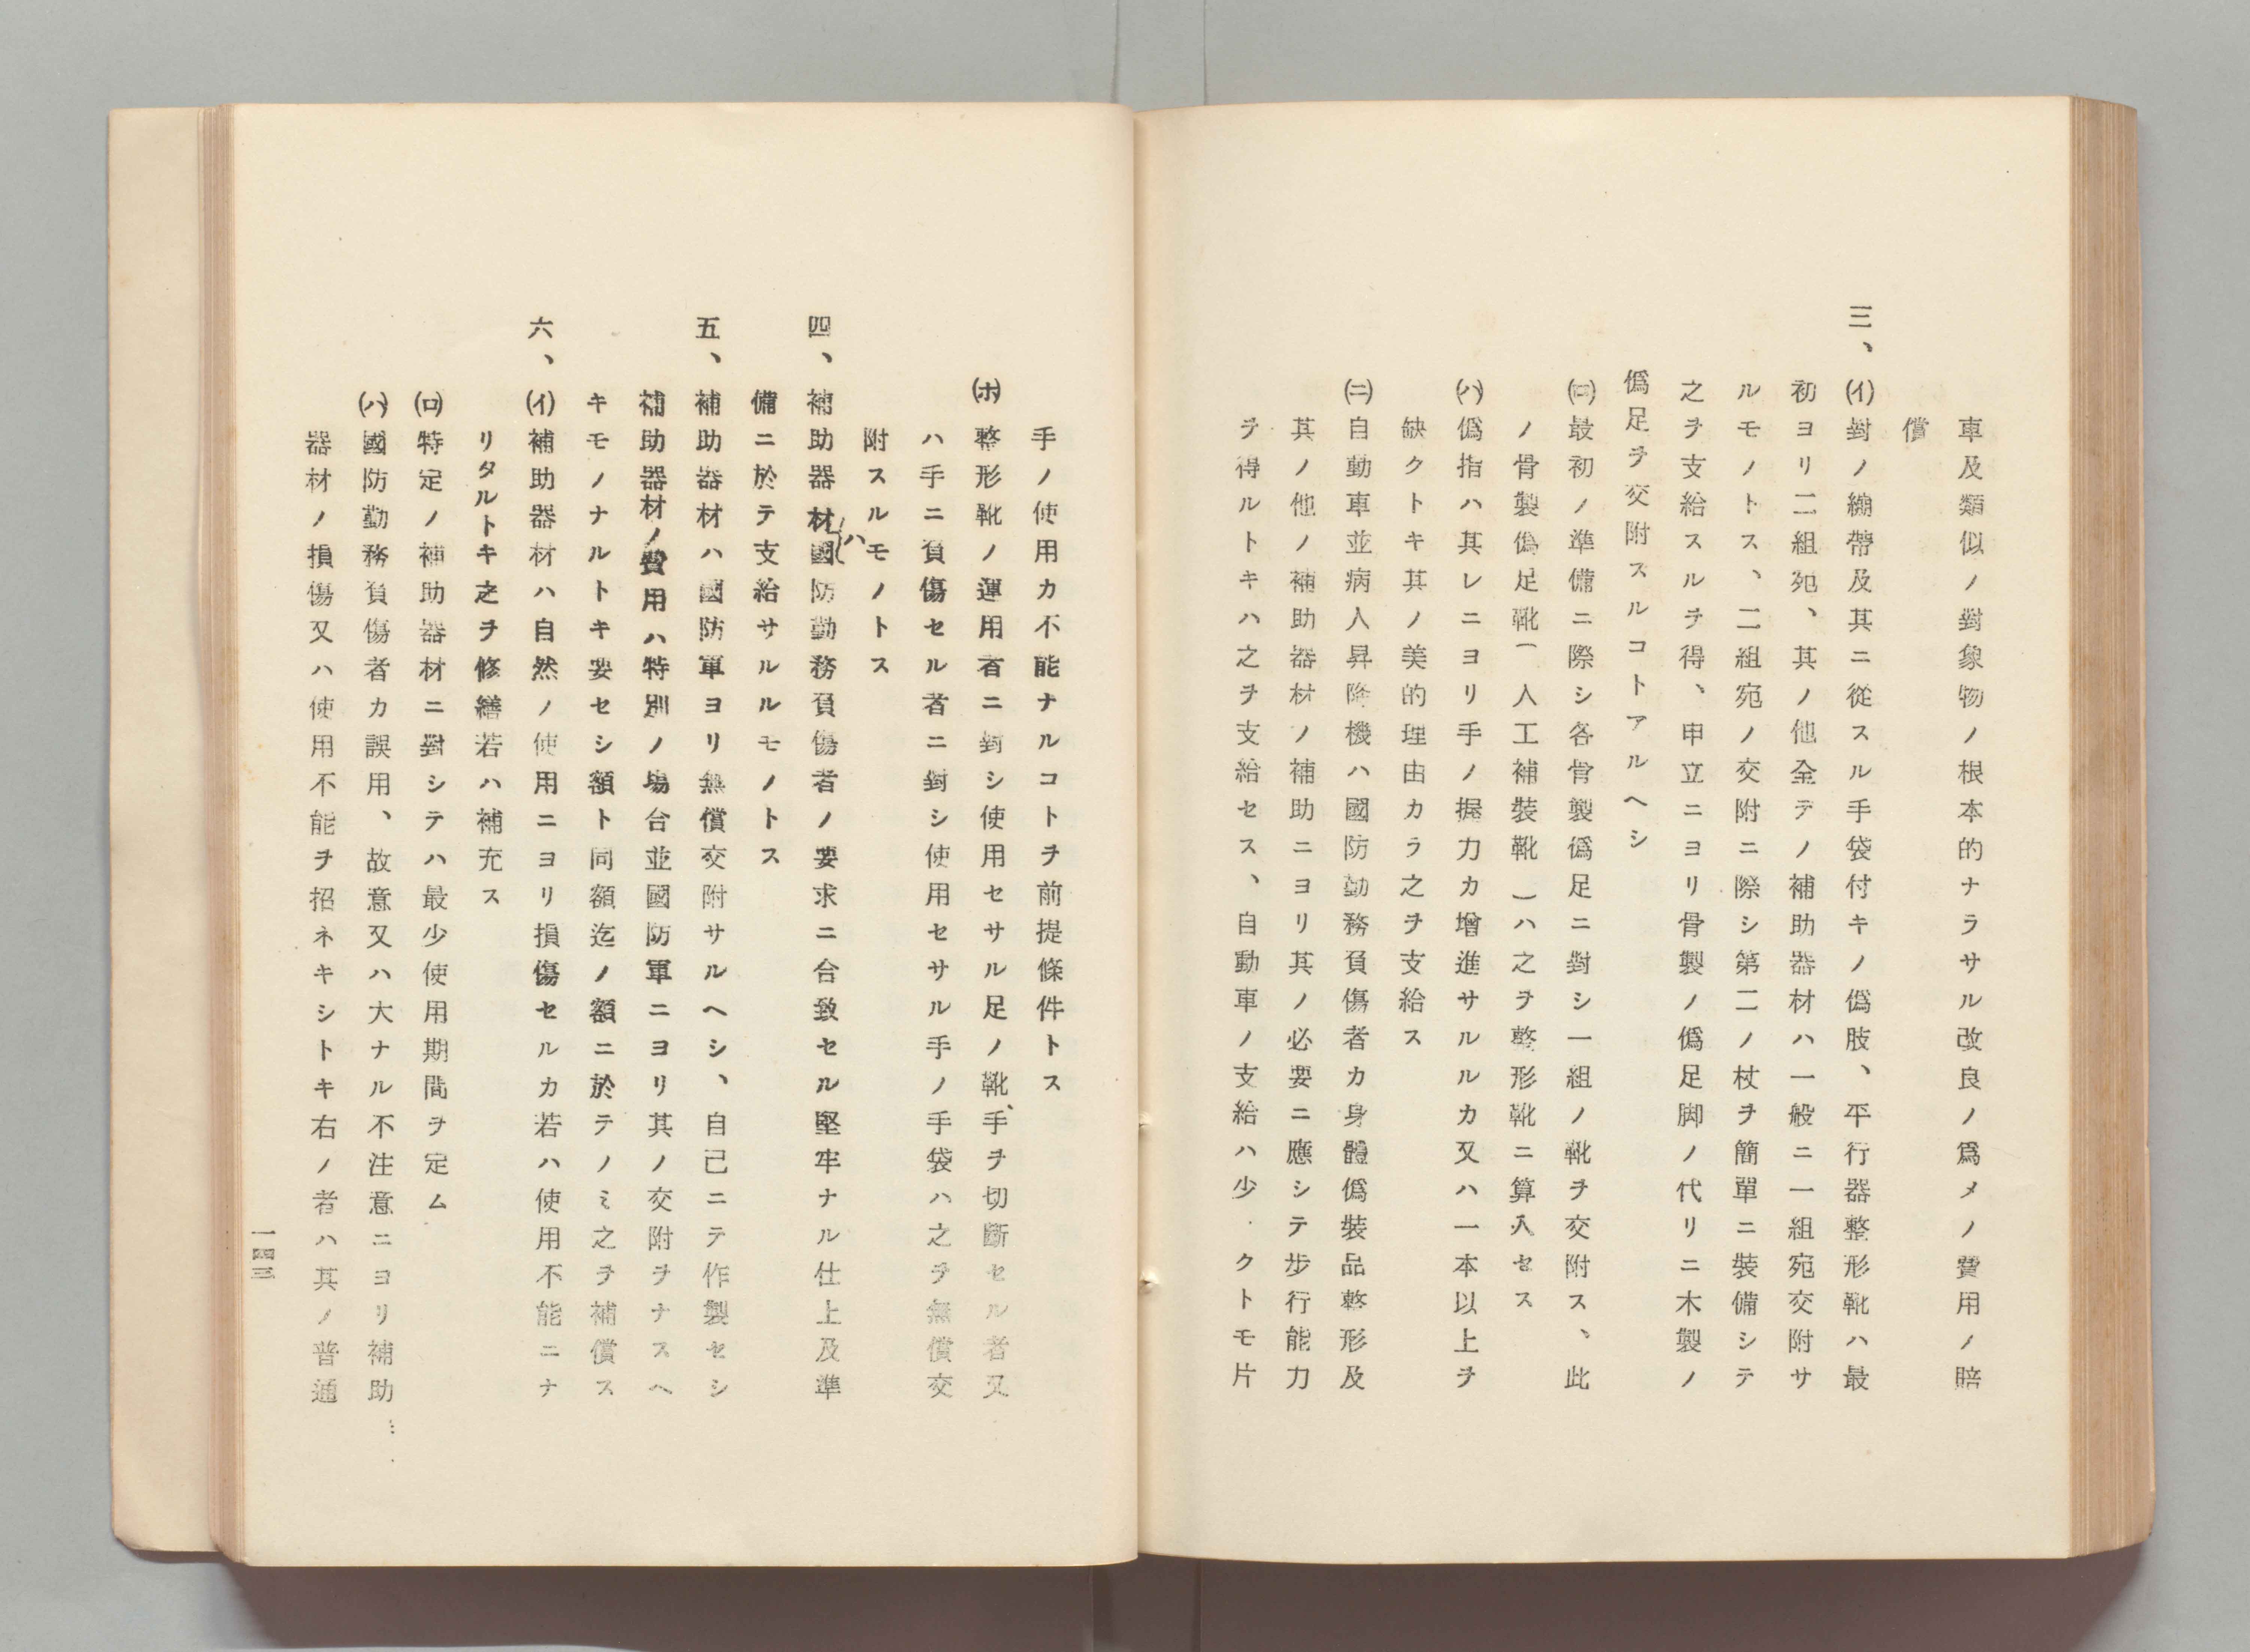 車及類似ノ對象物ノ根本的ナラサル改良ノ爲メノ費用ノ賠
償
三、(イ)對ノ繃帶及其ニ從スル手袋付キノ僞肢、平行器整形靴ハ最
初ヨリ二組宛、其ノ他全テノ補助器材ハ一般ニ一組宛交附サ
ルモノトス、二組宛ノ交附ニ際シ第二ノ杖ヲ簡單ニ裝備シテ
之ヲ支給スルヲ得、申立ニヨリ骨製ノ僞足脚ノ代リニ木製ノ
僞足ヲ交附スルコトアルヘシ
(ロ)最初ノ準備ニ際シ各骨製僞足ニ對シ一組ノ靴ヲ交附ス、此
ノ骨製僞足靴(人工補裝靴)ハ之ヲ整形靴ニ算入セス
(ハ)僞指ハ其レニヨリ手ノ握力カ增進サルルカ又ハ一本以上ヲ
缺クトキ其ノ美的理由カラ之ヲ支給ス
(ニ)自動車並病人昇降機ハ國防勤務負傷者カ身體僞裝品整形及
其ノ他ノ補助器材ノ補助ニヨリ其ノ必要ニ應シテ步行能力
ヲ得ルトキハ之ヲ支給セス、自動車ノ支給ハ少クトモ片
手ノ使用カ不能ナルコトヲ前提條件トス
(ホ)整形靴ノ運用者ニ對シ使用セサル足ノ靴、手ヲ切斷セル者又
ハ手ニ負傷セル者ニ對シ使用セサル手ノ手袋ハ之ヲ無償交
附スルモノトス
四、補助器材ハ國防勤務負傷者ノ要求ニ合致セル堅牢ナル仕上及準
備ニ於テ支給サルルモノトス
五、補助器材ハ國防軍ヨリ無償交附サルヘシ、自己ニテ作製セシ
補助器材ノ費用ハ特別ノ場合並國防軍ニヨリ其ノ交附ヲナスヘ
キモノナルトキ要セシ額ト同額迄ノ額ニ於テノミ之ヲ補償ス
六、(イ)補助器材ハ自然ノ使用ニヨリ損傷セルカ若ハ使用不能ニナ
リタルトキ之ヲ修繕若ハ補充ス
(ロ)特定ノ補助器材ニ對シテハ最少使用期間ヲ定ム
(ハ)國防勤務負傷者カ誤用、故意又ハ大ナル不注意ニヨリ補助
器材ノ損傷又ハ使用不能ヲ招ネキシトキ右ノ者ハ其ノ普通
一四三